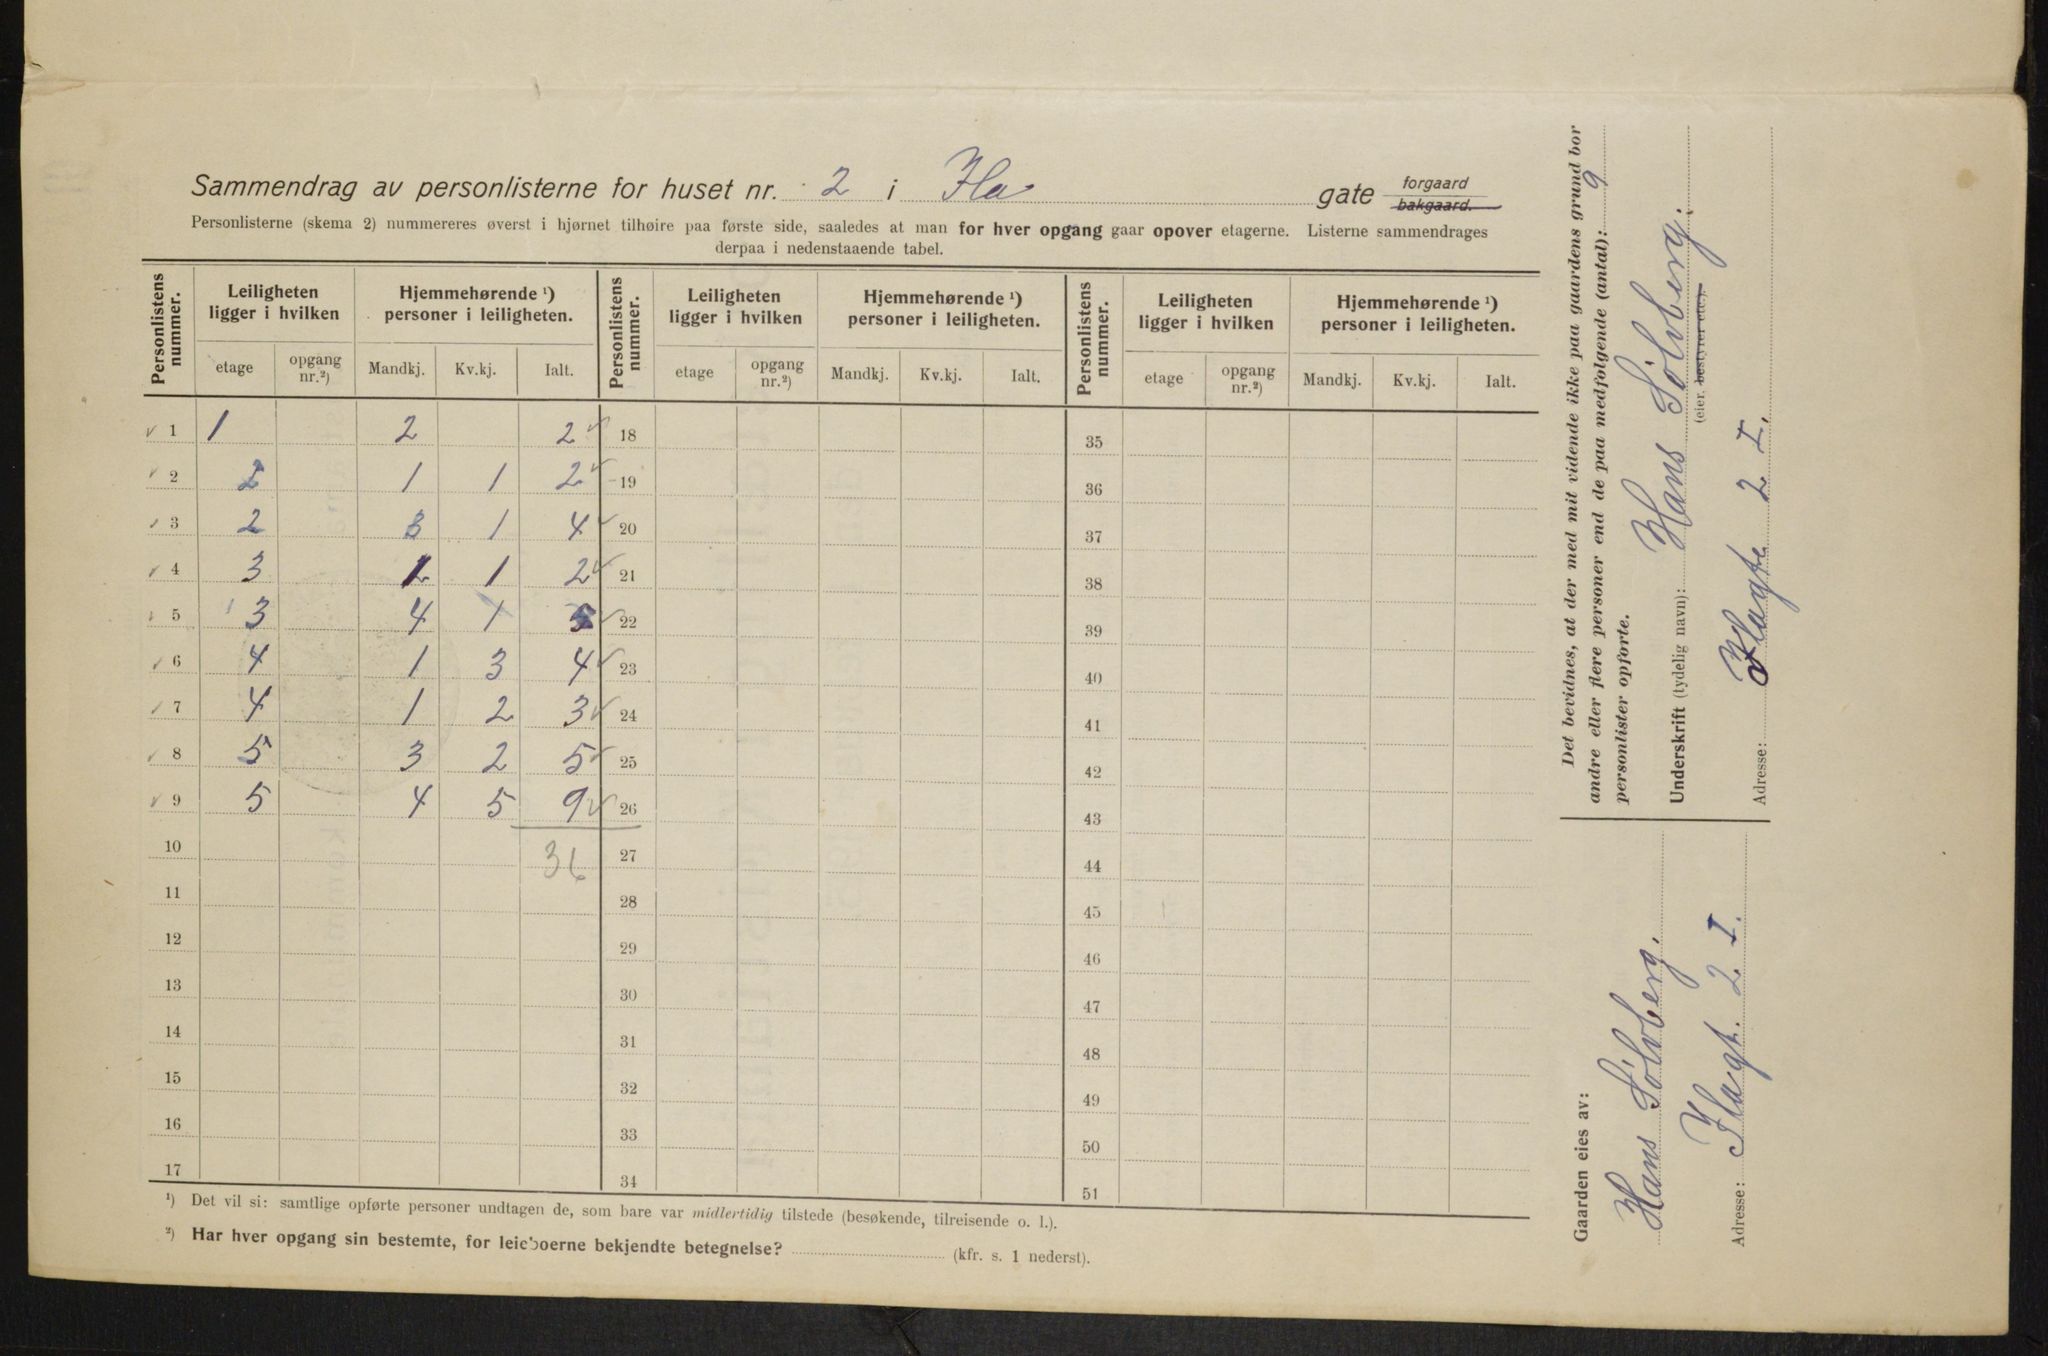 Sammendrag av personlisterne for huset nr. 2 i Ila gate forgaard bakgaard.
Personlisterne (skema 2) nummereres øverst i hjørnet tilhøire paa første side, saaledes at man for hver opgang gaar opover etagerne. Listerne sammendrages
derpaa i nedenstaaende tabel.
Personlistens nummer. Leiligheten ligger i hvilken Hjemmehørende ¹) personer i leiligheten. Personlistens nummer. Leiligheten ligger i hvilken Hjemmehørende ¹) personer i leiligheten. Personlistens nummer. Leiligheten ligger i hvilken Hjemmehørende ¹) personer i leiligheten.
etage opgang nr.²) Mandkj. Kv.kj. Ialt. etage opgang nr.²) Mandkj. Kv.kj. Ialt. etage opgang nr.²) Mandkj. Kv.kj. Ialt.
1 1 2 2 18 35
2 2 1 1 2 19 36
3 2 3 1 4 20 37
4 3 1 1 2 21 38
5 3 4 1 5 22 39
6 4 1 3 4 23 40
7 4 1 2 3 24 41
8 5 3 2 5 25 42
9 5 4 5 9 26 43
10 36 27 44
11 28 45
12 29 46
13 30 47
14 31 48
15 32 49
16 33 50
17 34 51
¹) Det vil si: samtlige opførte personer undtagen de, som bare var midlertidig tilstede (besøkende, tilreisende o. l.).
²) Har hver opgang sin bestemte, for leieboerne bekjendte betegnelse? (kfr. s. 1 nederst).
Det bevidnes, at der med mit vidende ikke paa gaardens grund bor
andre eller flere personer end de paa medfølgende (antal): 9
personlister opførte.
Underskrift (tydelig navn): Hans Sölvberg.
(eier, bestyrer etc.).
Adresse: Ilagte 2 I.
Gaarden eies av:
Hans Sölvberg.
Adresse: Ilagt. 2 I.